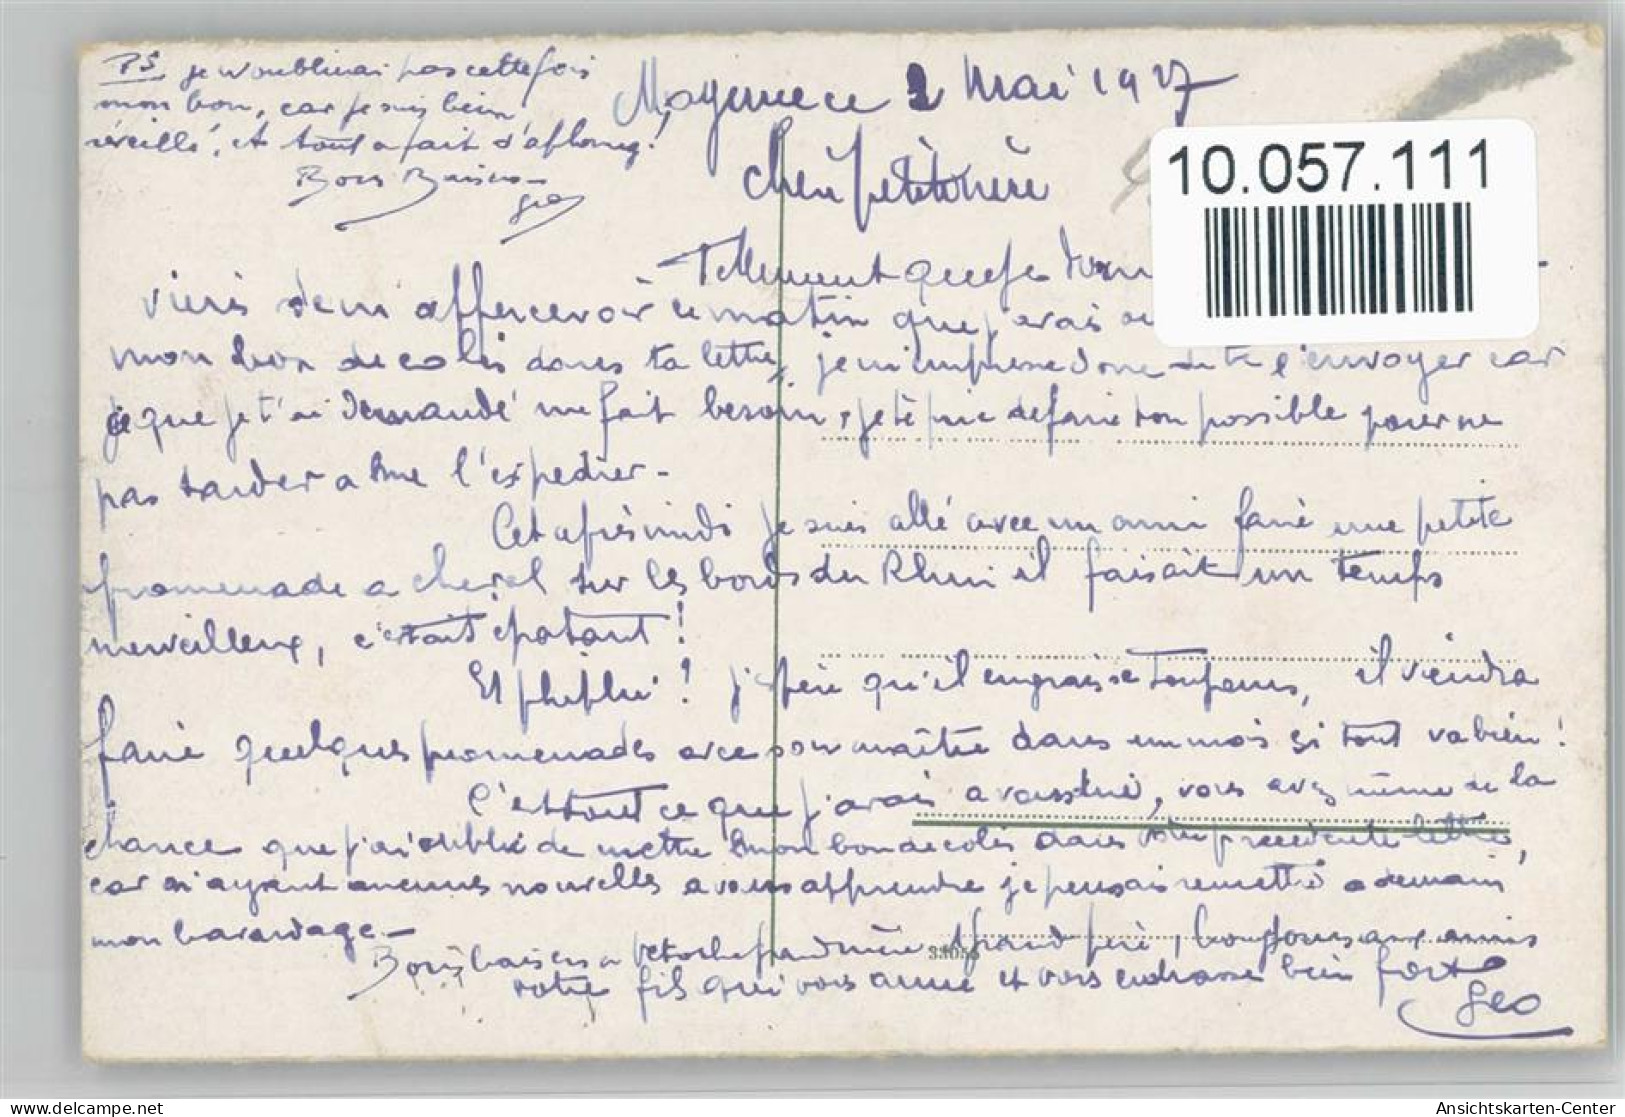 PS je n'oublierai pas cette fois
mon bon, car je suis bien
réveillé, et tout a fait d'aplomb!
Bons Baisers -
Geo
Mayence ce 2 Mai 1927
Chère petite mère
Tellement que je
viens de m'appercevoir ce matin que j'avais
mon bon de colis dans ta lettre, je m'empresse donc de te l'envoyer car
ce que je t'ai demandé me fait besoin, je te prie de faire ton possible pour ne
pas tarder a me l'expedier -
Cet après midi je suis allé avec un ami faire une petite
promenade a cheval sur les bords du Rhin il faisait un temps
merveilleux, c'etait epatant!
Et phiphui! j'espère qu'il engraisse toujours, il viendra
faire quelques promenades avec son maître dans un mois si tout va bien!
C'est tout ce que j'avais a vous dire, vous avez même de la
chance que j'ai oublié de mettre mon bon de colis dans precedente lettre,
car n'ayant aucunes nouvelles a vous apprendre je pensais remettre a demain
mon bavardage -
Bons baisers a grand mère grand père, bonjours aux amis
votre fils qui vous aime et vous embrasse bien fort
Geo
10.057.111
delcampe.net
Ansichtskarten-Center